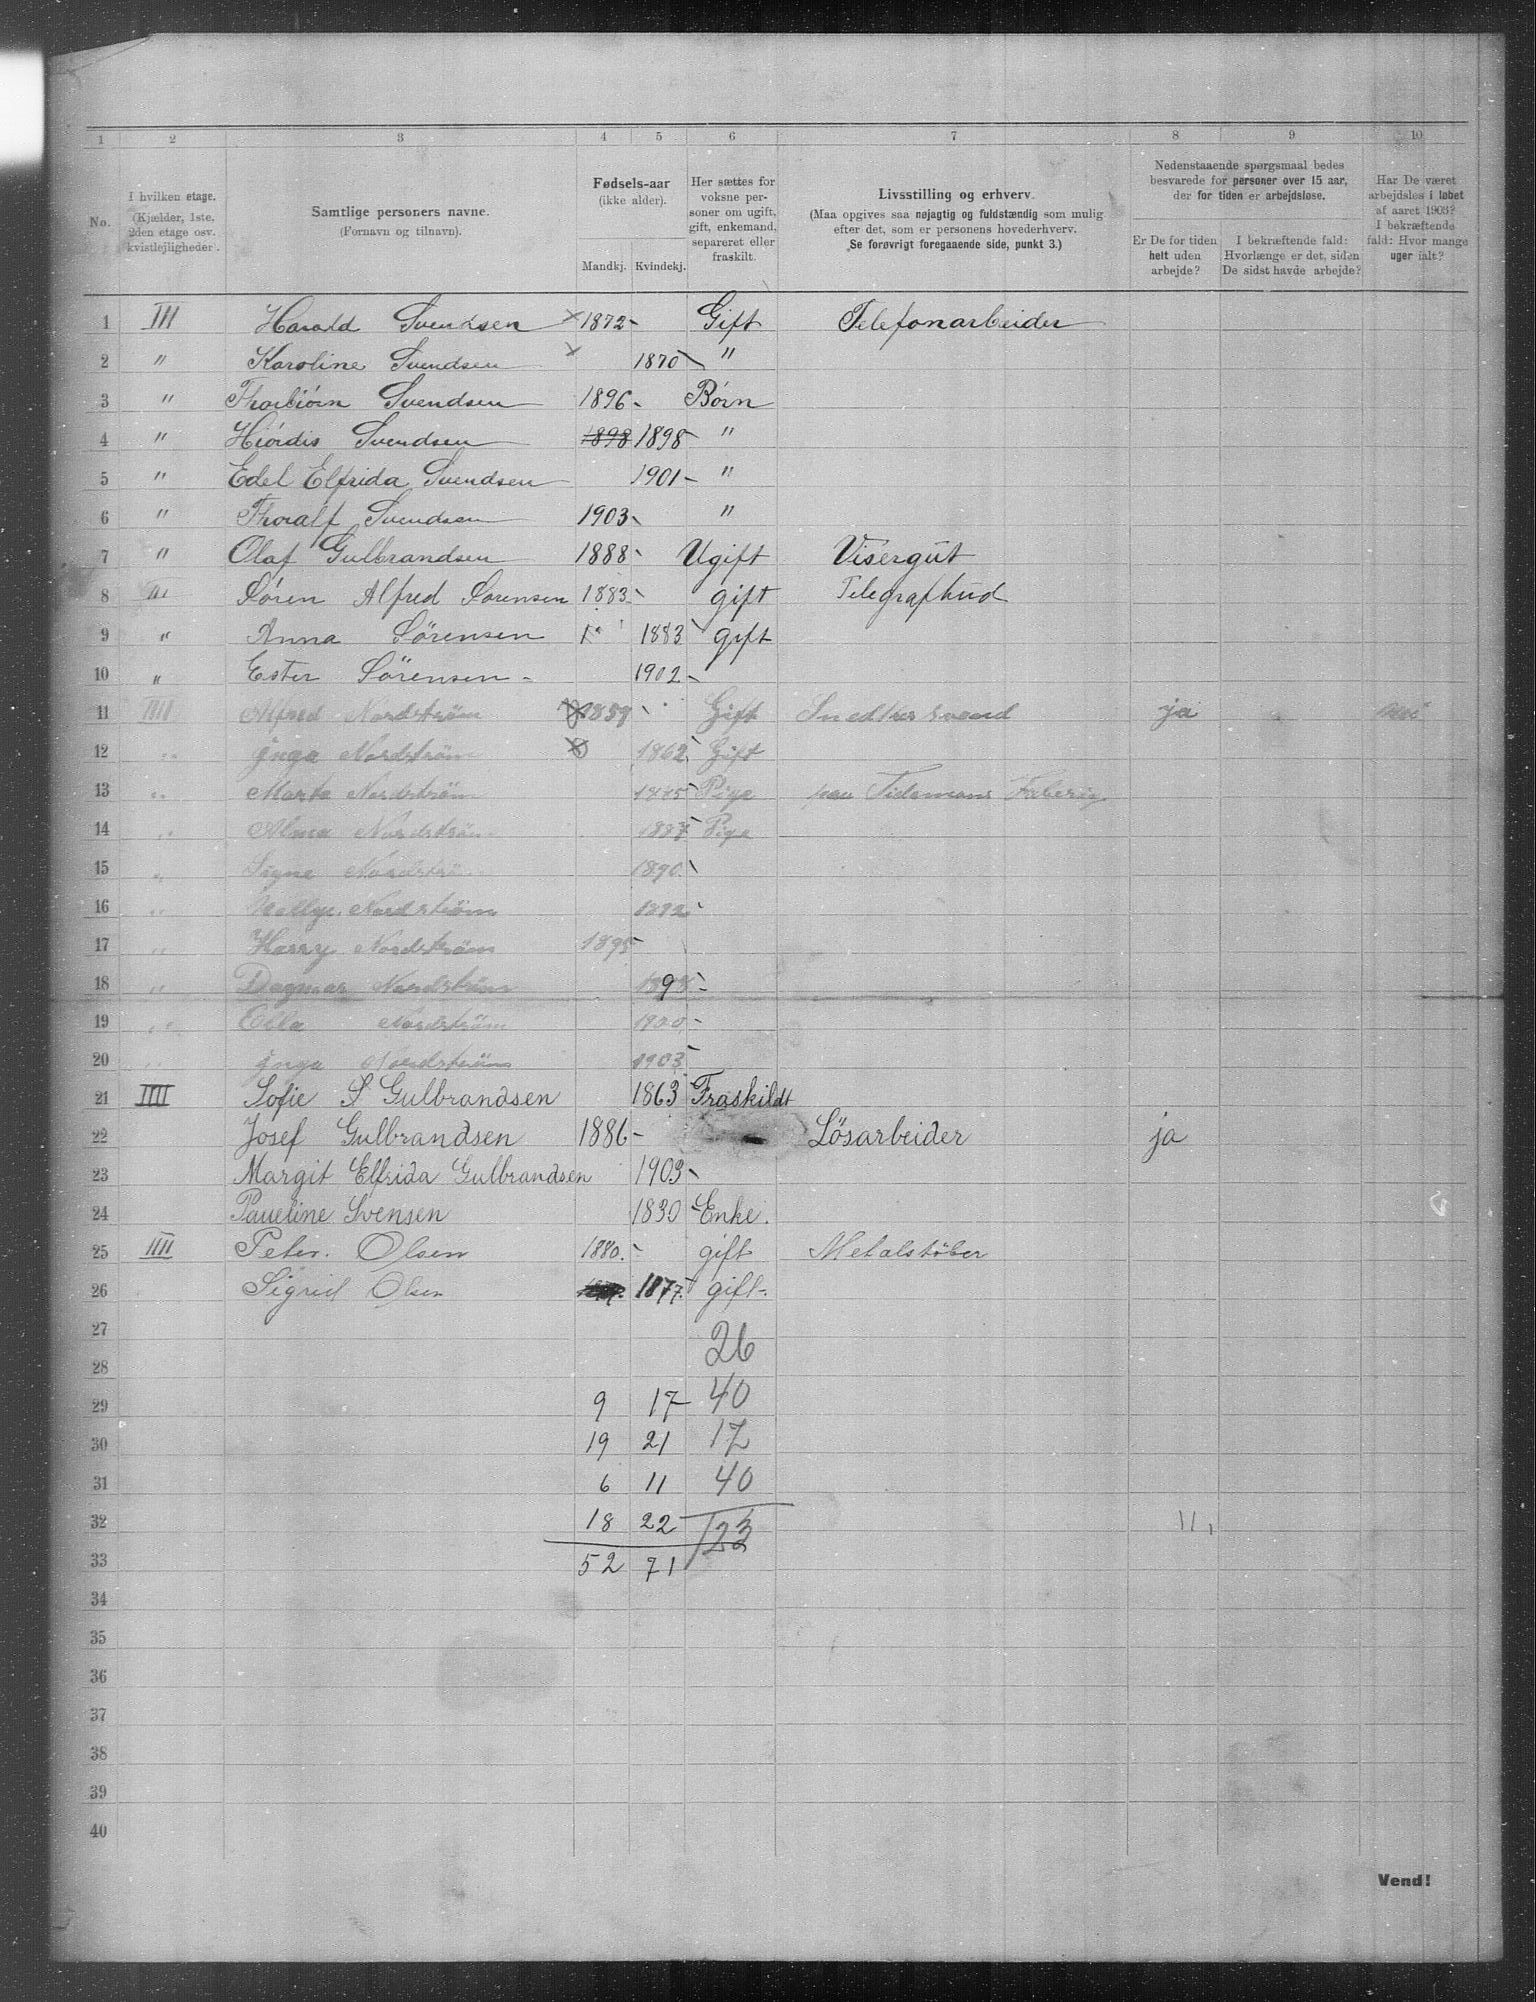 1 2 3 4 5 6 7 8 9 10
No. I hvilken etage. (Kjælder, 1ste, 2den etage osv. kvistlejligheder). Samtlige personers navne. (Fornavn og tilnavn). Fødsels-aar (ikke alder). Mandkj. Kvindekj. Her sættes for voksne personer om ugift, gift, enkemand, separeret eller fraskilt. Livsstilling og erhverv. (Maa opgives saa nøjagtig og fuldstændig som mulig efter det, som er personens hovederhverv. Se forøvrigt foregaaende side, punkt 3.) Nedenstaaende spørgsmaal bedes besvarede for personer over 15 aar, der for tiden er arbejdsløse. Er De for tiden helt uden arbejde? I bekræftende fald: Hvorlænge er det, siden De sidst havde arbejde? Har De været arbejdsløs i løbet af aaret 1903? I bekræftende fald: Hvor mange uger ialt?
1 III Harald Svendsen × 1872 - Gift Telefonarbeider
2 " Karoline Svendsen × 1870 "
3 " Thorbiörn Svendsen 1896 - Børn
4 " Hiördis Svendsen 1898 1898 - "
5 " Edel Elfrida Svendsen 1901 - "
6 " Thoralf Svendsen 1903 "
7 " Olaf Gulbrandsen 1888 - Ugift Visergut
8 III Sören Alfred Sörensen 1883 gift Telegrafbud
9 " Anna Sörensen 1883 gift
10 " Ester Sörensen - 1902 -
11 IIII Alfred Nordström 1859 Gift Snedkersvend ja
12 " Inga Nordström 1862 Gift
13 " Marta Nordström 1885 Pige paa Tidemans Faberig
14 " Alma Nordström 1887 Pige
15 " Signe Nordström 1890
16 " Nordström 1892
17 " Harry Nordström 1895
18 " Dagmar Nordström 1898 -
19 " Ella Nordström 1900 -
20 " Inga Nordström 1903
21 IIII Sofie S Gulbrandsen 1863 Fraskildt
22 Josef Gulbrandsen 1886 - Lösarbeider ja
23 Margit Elfrida Gulbrandsen 1903
24 Paueline Svensen 1830 Enke.
25 IIII Peter. Olsen 1880. - gift Metalstöber
26 Sigrid Olsen 1877. gift.
27 26
28
29 9 17 40
30 19 21 17
31 6 11 40
32 18 22 123 11
33 52 71
34
35
36
37
38
39
40
Vend!